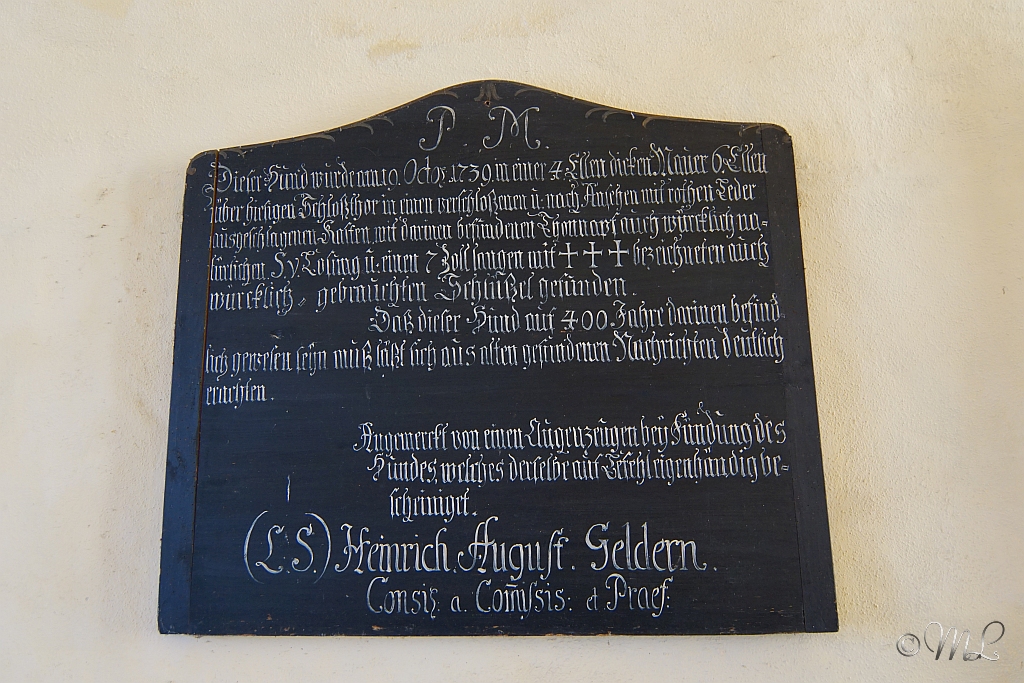 P. M.
Dieser Hund wurde am 19. Octbr. 1739 in einer 4. Ellen dicken Mauer 6. Ellen
über hiesigen Schloßthor in einen verschloßenen u. nach Ansehen mit rothen Leder
ausgeschlagenen Kasten, mit darinen befindenen auch würcklich na-
türlichen u. einen 7 Zoll langen mit + + + bezeichneten auch
würcklich, gebrauchten Schlüßel gefunden.
Daß dieser Hund auf 400 Jahre darinen befind-
lich gewesen seyn muß läßt sich aus alten gefundenen Nachrichten deutlich
erachten.
Angemerckt von einen Augenzeugen bey Fündung des
Hundes, welches derselbe auf Befehl eigenhändig be-
scheiniget.
(L. S.) Heinrich. August. Geldern.
Consil. a. Com̅issis: et Praef:
© ML